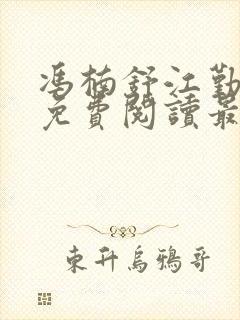 馮楠舒江勤
免費閱讀最
東升烏鴉哥